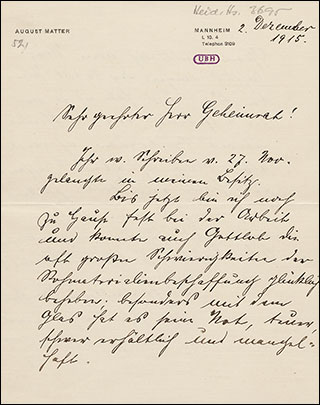 Heid. Hs. 2695
AUGUST MATTER
52,
MANNHEIM 2. Dezember
L 10. 4 1915.
Telephon 3129
UBH
Sehr geehrter Herr Geheimrat!
Ihr w. Schreiben v. 27. Nov.
gelangte in meinen Besitz.
Bis jetzt bin ich noch
zu Hause fest bei der Arbeit
und konnte auch Gottlob die
oft großen Schwierigkeiten der
Rohmaterialienbeschaffung glücklich
beheben. besonders mit dem
Glas hat es seine Not, teuer,
schwer erhältlich und mangel-
haft.